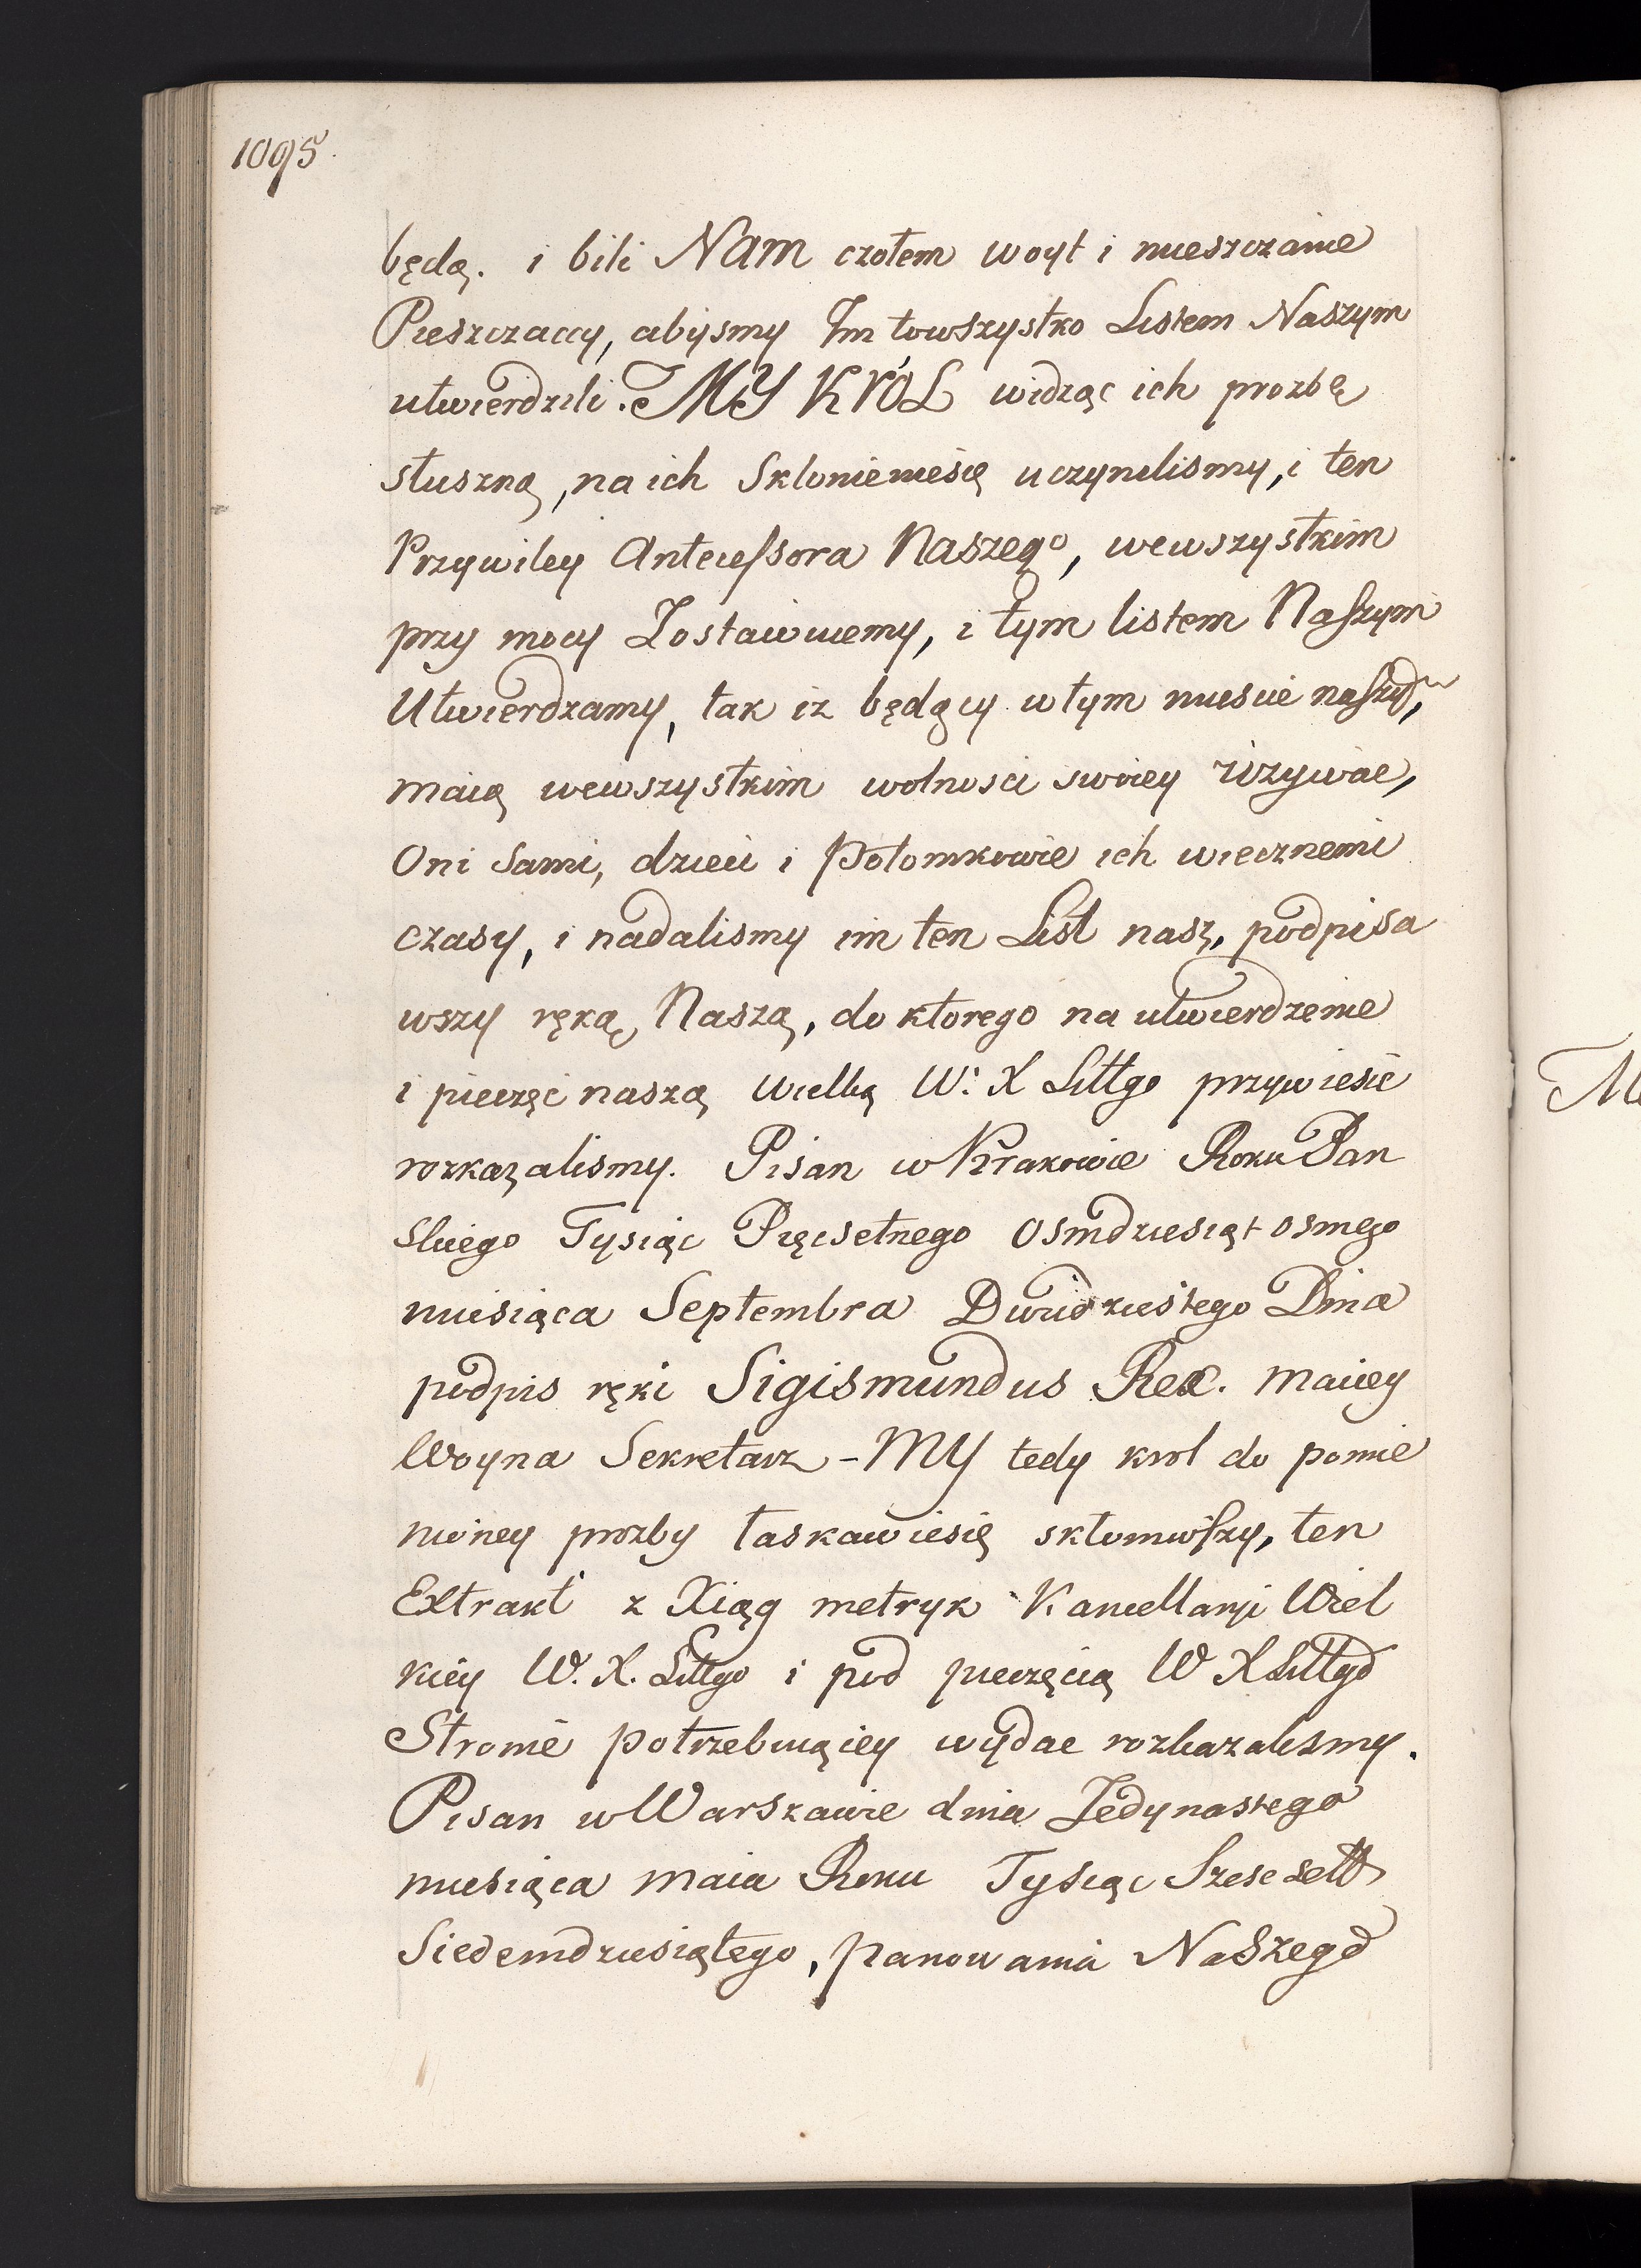 1095.
będą. i bili NAM czołem woyt i mieszczanie
Pieszczaccy, abysmy Im towszystko Listem Naszym
utwierdzili. MY KRÓL widząc ich prozbę
słuszną, na ich Skloniemiesię uczynilismy, i ten
Przywiley Antecessora Naszego, wewszystkim
przy mocy Zostawuiemy, i tym listem Naszym
Utwierdzamy, tak iz będący w tym miescie naszym,
maią wewszystkim wolnosci swoiey używac,
Oni Sami, dzieci i Potomkowie ich wiecznemi
czasy, i nadalismy im ten List nasz, podpisa
wszy ręką Naszą, do ktorego na utwierdzenie
i pieczęć naszą Wielką W: X Littgo przywiesic
rozkazalismy. Pisan w Krakowie Roku Pan
skiego Tysiąc Pięcsetnego Osmdziesiąt osmego
miesiąca Septembra Dwudziestego Dnia
podpis ręki Sigismundus Rex. Maciey
Woyna Sekretarz - MY tedy krol do pomie
nioney prozby łaskawiesię skłoniwszy, ten
Extrakt z Xiąg metryk Kancellaryi Wiel
kiey W. X. Littgo i pod pieczęcią W X Littgo
Stronie potrzebuiącey wydac rozkazalismy.
Pisan w Warszawie dnia Jedynastego
miesiąca Maia Roku Tysiąc Szescsett
Siedemdziesiątego, panowania Naszego